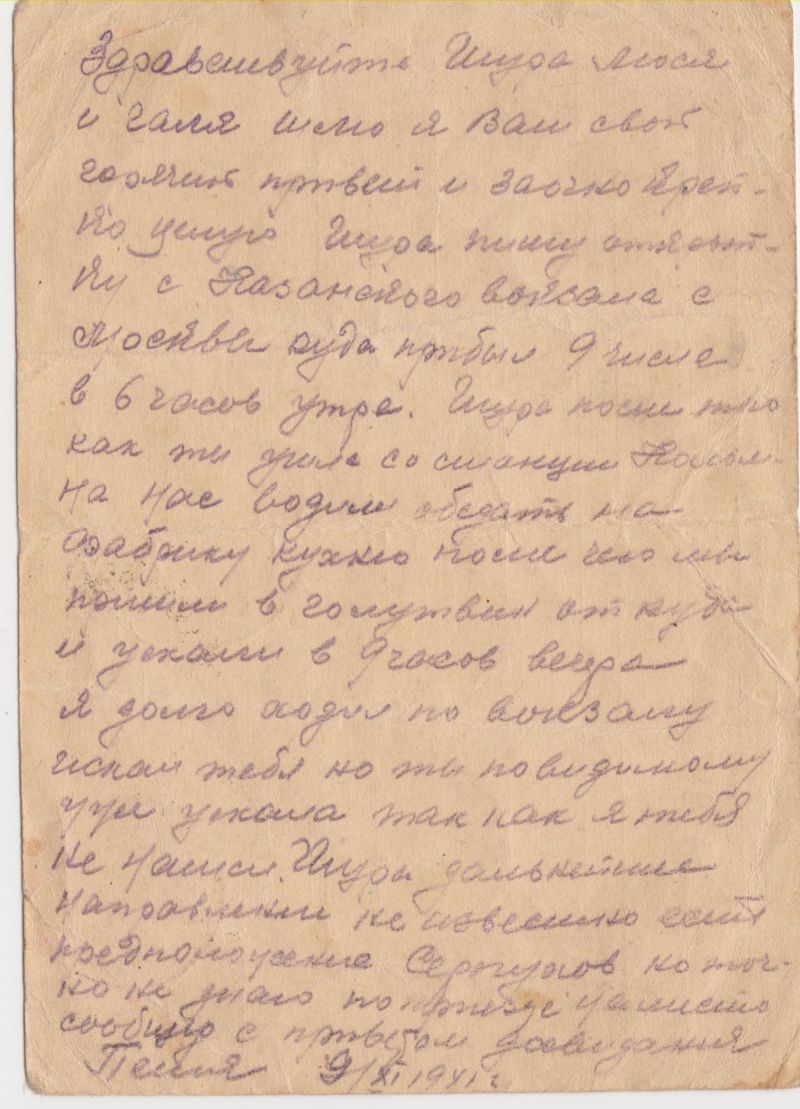 Здравствуйте Шура Люся
и Галя шлю я Вам свой
горячий привет и заочно креп-
ко целую Шура пишу открыт-
ку с Казанского вокзала с
Москвы куда прибыл 9 числа
в 6 часов утра. Шура после того
как ты ушла со станции Колом-
на нас водили обедать на
фабрику кухню после чего мы
пошли в голутвин откуда
и уехали в 9 часов вечера
я долго ходил по вокзалу
искал тебя но ты повидимому
уже уехала так как я тебя
не нашел. Шура дальнейшее
направление не известно есть
предположение Серпухов но точ-
но не знаю по приезде на место
сообщу с приветом досвидания
9/XI 1941 г